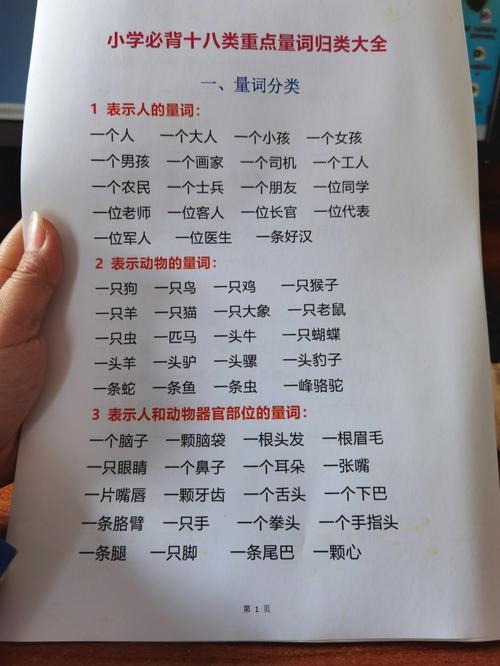 小学必背十八类重点量词归类大全
一、量词分类
1 表示人的量词：
一个人 一个大人 一个小孩 一个女孩
一个男孩 一个画家 一个司机 一个工人
一个农民 一个士兵 一个朋友 一位同学
一位老师 一位客人 一位长官 一位代表
一位军人 一位医生 一条好汉
2 表示动物的量词：
一只狗 一只鸟 一只鸡 一只猴子
一只羊 一只猫 一只大象 一只老鼠
一只虫 一匹马 一头牛 一只蝴蝶
一头羊 一头驴 一头骡 一头豹子
一条蛇 一条鱼 一条虫 一峰骆驼
3 表示人和动物器官部位的量词：
一个脑子 一颗脑袋 一根头发 一根眉毛
一只眼睛 一个鼻子 一个耳朵 一张嘴
一片嘴唇 一颗牙齿 一个舌头 一个下巴
一条胳臂 一只手 一个拳头 一个手指头
一条腿 一只脚 一条尾巴 一颗心
第 1 页